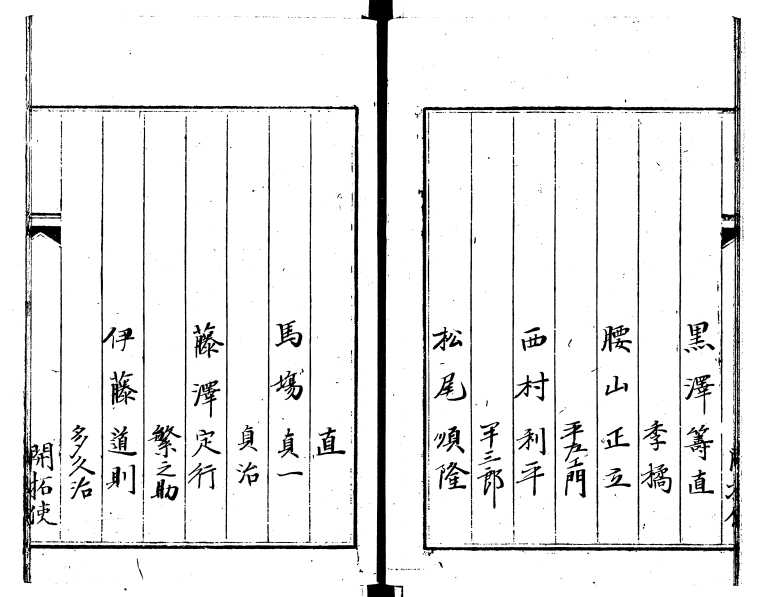 黒澤籌直
季橘
腰山正立
平左エ門
西村利平
甲三郎
松尾順隆
直
馬塲貞一
貞治
藤澤定行
繁之助
伊藤道則
多久治
開拓使